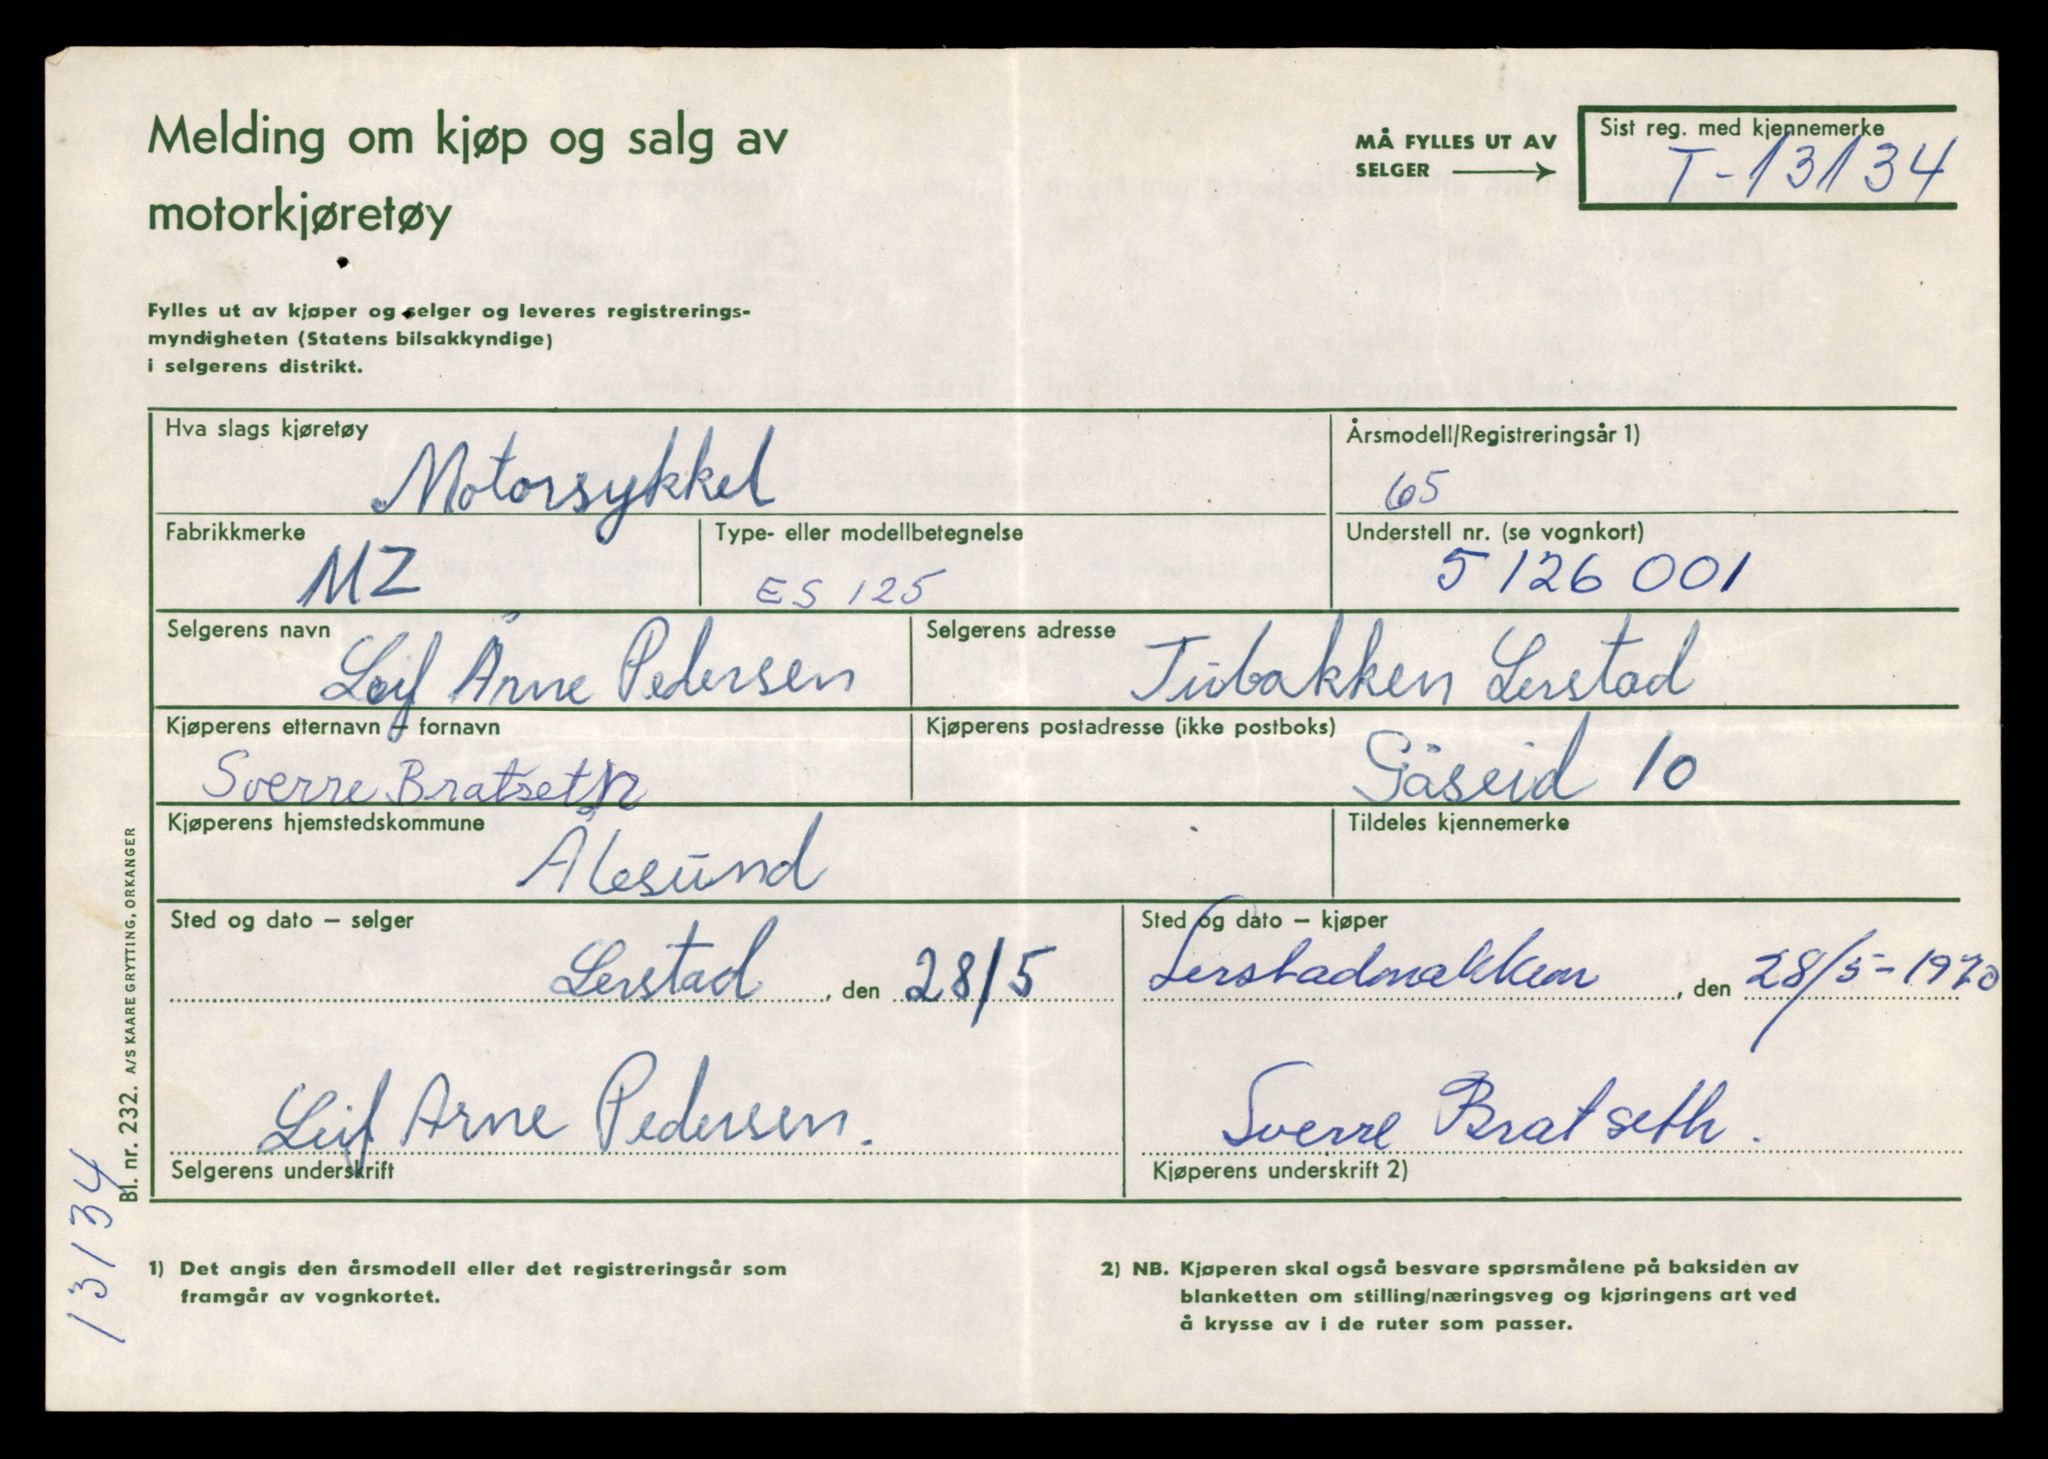 Melding om kjøp og salg av
motorkjøretøy
MÅ FYLLES UT AV
SELGER
Sist reg. med kjennemerke
T-13134
Fylles ut av kjøper og selger og leveres registrerings-
myndigheten (Statens bilsakkyndige)
i selgerens distrikt.
Hva slags kjøretøy
Motorsykkel
Årsmodell/Registreringsår 1)
65
Fabrikkmerke
MZ
Type- eller modellbetegnelse
ES 125
Understell nr. (se vognkort)
5126001
Selgerens navn
Leif Arne Pedersen
Selgerens adresse
Tubakken Lerstad
Kjøperens etternavn – fornavn
Sverre Bratseth
Kjøperens postadresse (ikke postboks)
Gåseid 10
Kjøperens hjemstedskommune
Ålesund
Tildeles kjennemerke
Sted og dato – selger
Lerstad, den 28/5
Sted og dato – kjøper
, den 28/5-1970
Leif Arne Pedersen.
Selgerens underskrift
Sverre Bratseth.
Kjøperens underskrift 2)
Bl. nr. 232. A/S KAARE GRYTTING, ORKANGER
13134
1) Det angis den årsmodell eller det registreringsår som
framgår av vognkortet.
2) NB. Kjøperen skal også besvare spørsmålene på baksiden av
blanketten om stilling/næringsveg og kjøringens art ved
å krysse av i de ruter som passer.